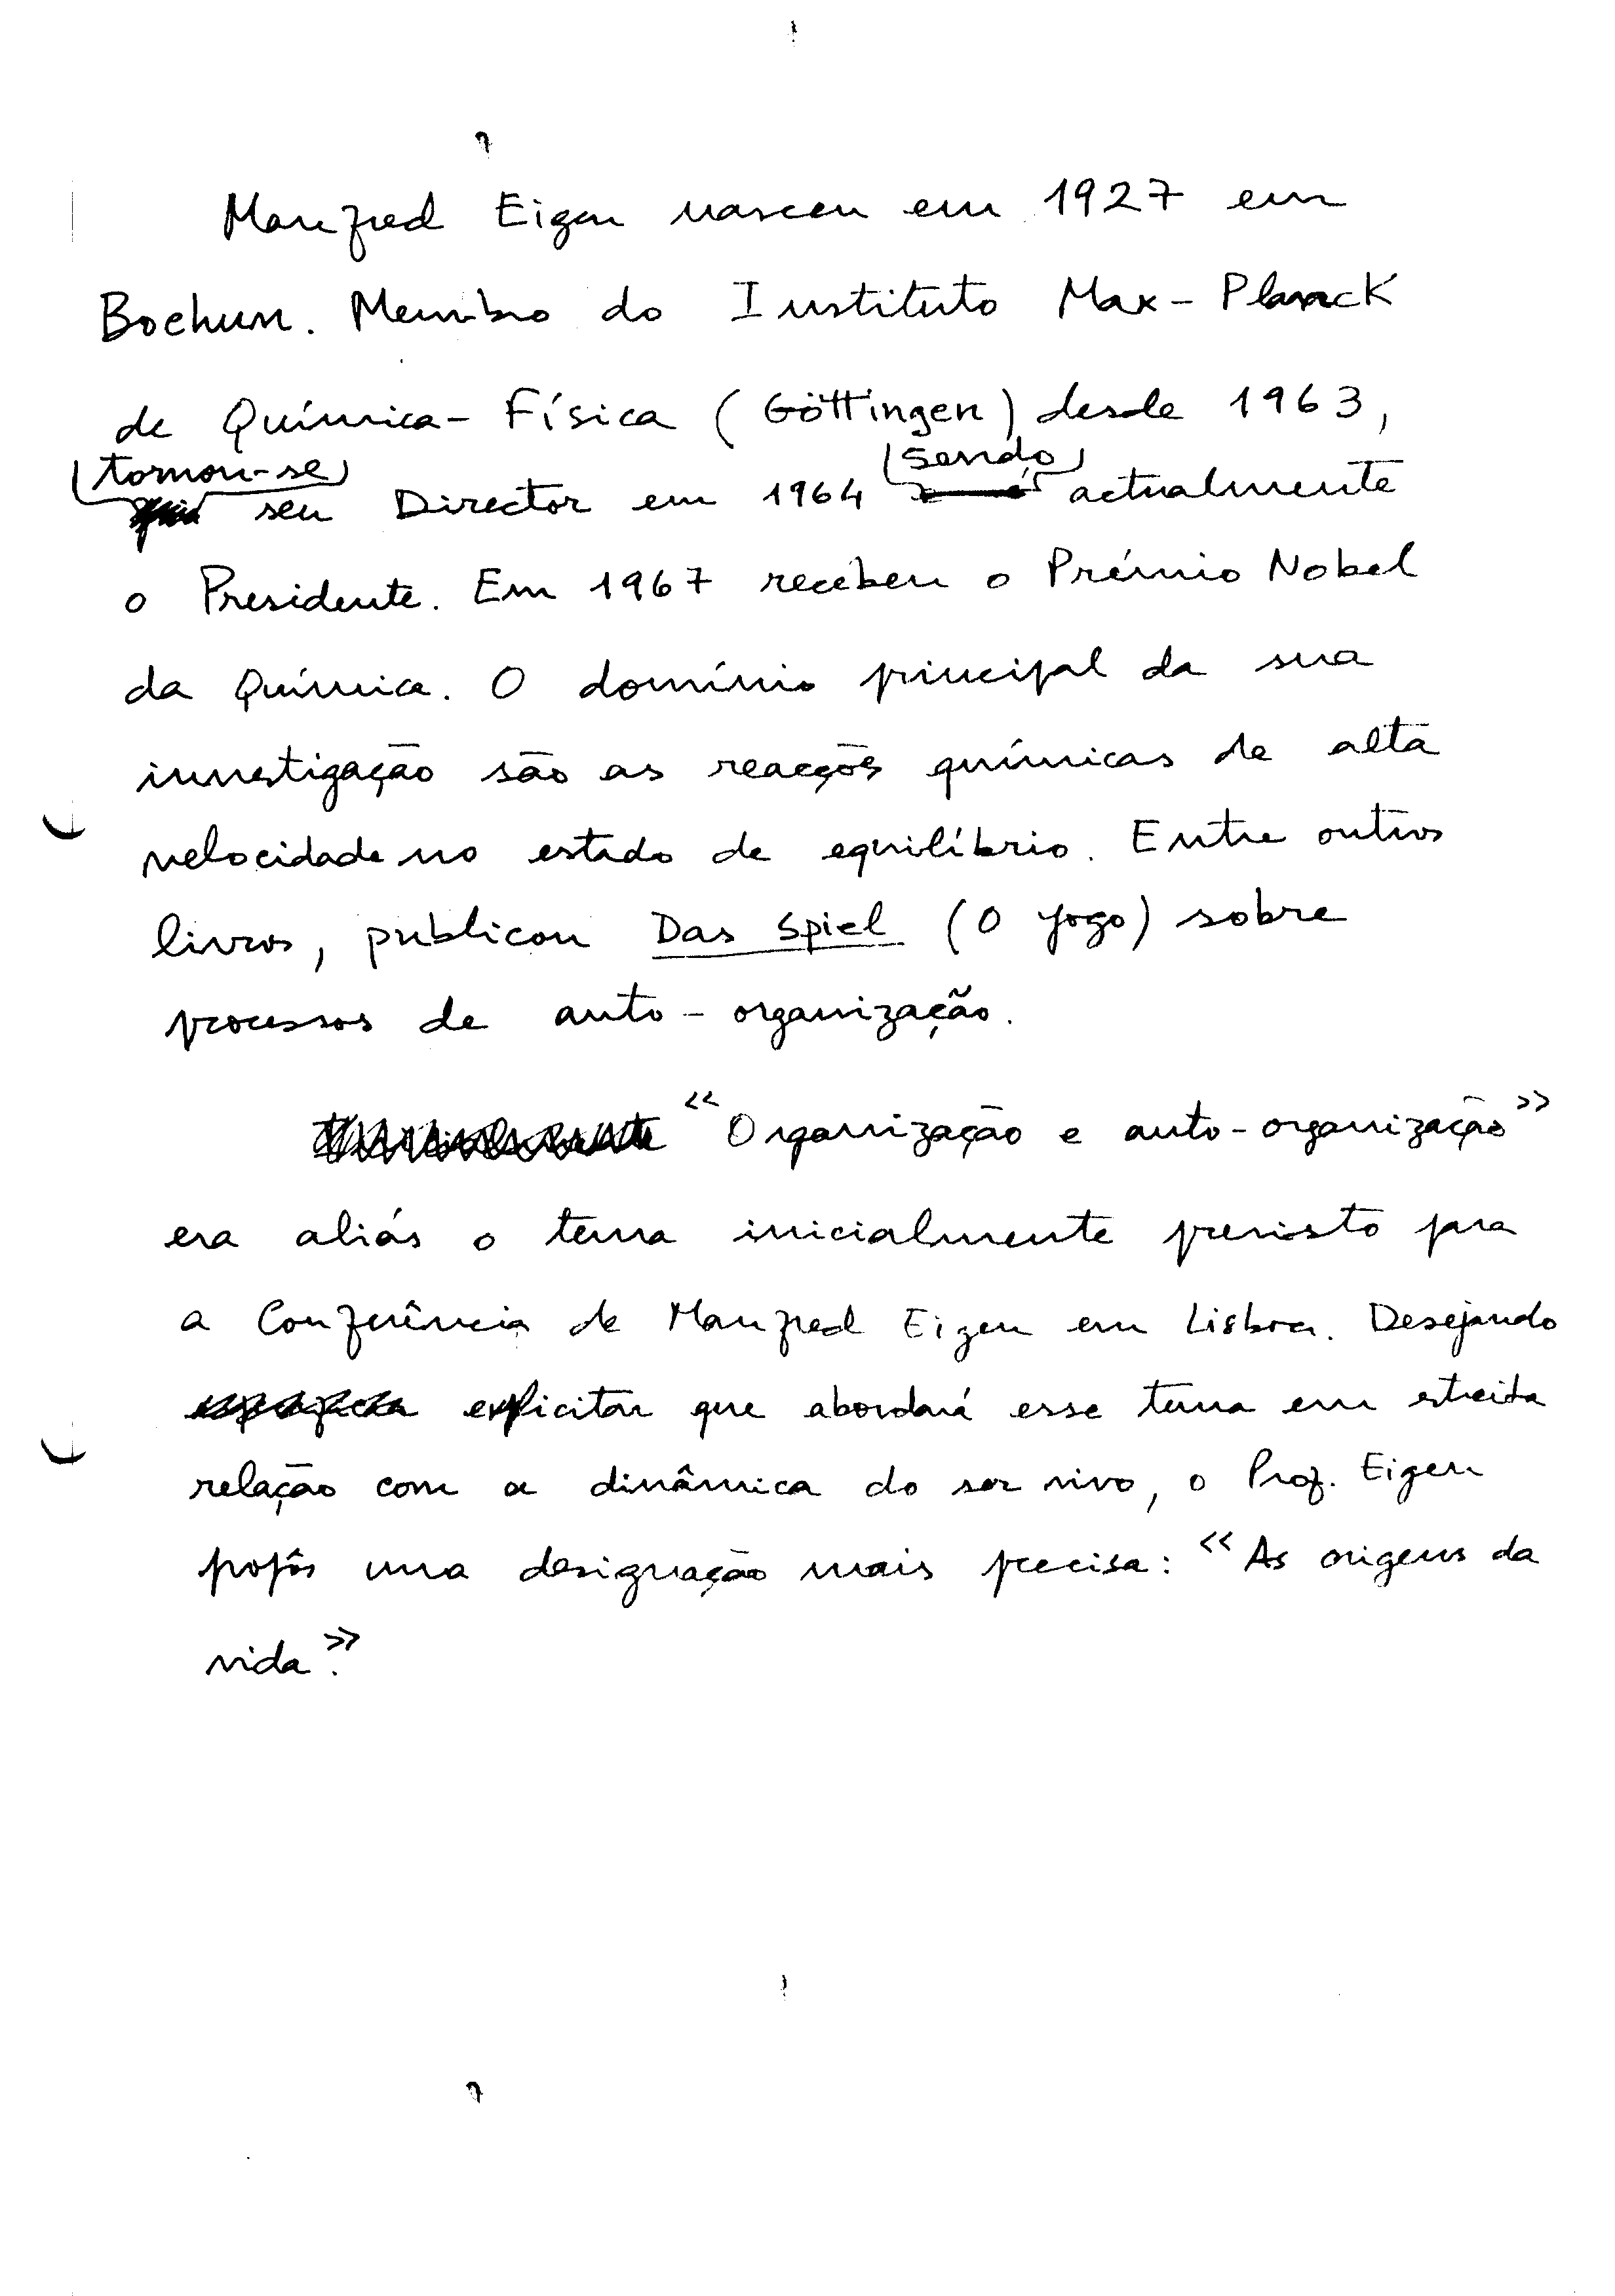 Manfred Eigen nasceu em 1927 em
Bochum. Membro do Instituto Max-Planck
de Química-Física (Göttingen) desde 1963,
tornou-se sendo
seu Director em 1964 actualmente
o Presidente. Em 1967 recebeu o Prémio Nobel
da Química. O domínio principal da sua
investigação são as reacções químicas de alta
velocidade no estado de equilíbrio. Entre outros
livros, publicou Das Spiel (O Jogo) sobre
processos de auto-organização.
«Organização e auto-organização»
era aliás o tema inicialmente previsto para
a Conferência de Manfred Eigen em Lisboa. Desejando
explicitar que abordará esse tema em estreita
relação com a dinâmica do ser vivo, o Prof. Eigen
propôs uma designação mais precisa: «As origens da
vida».